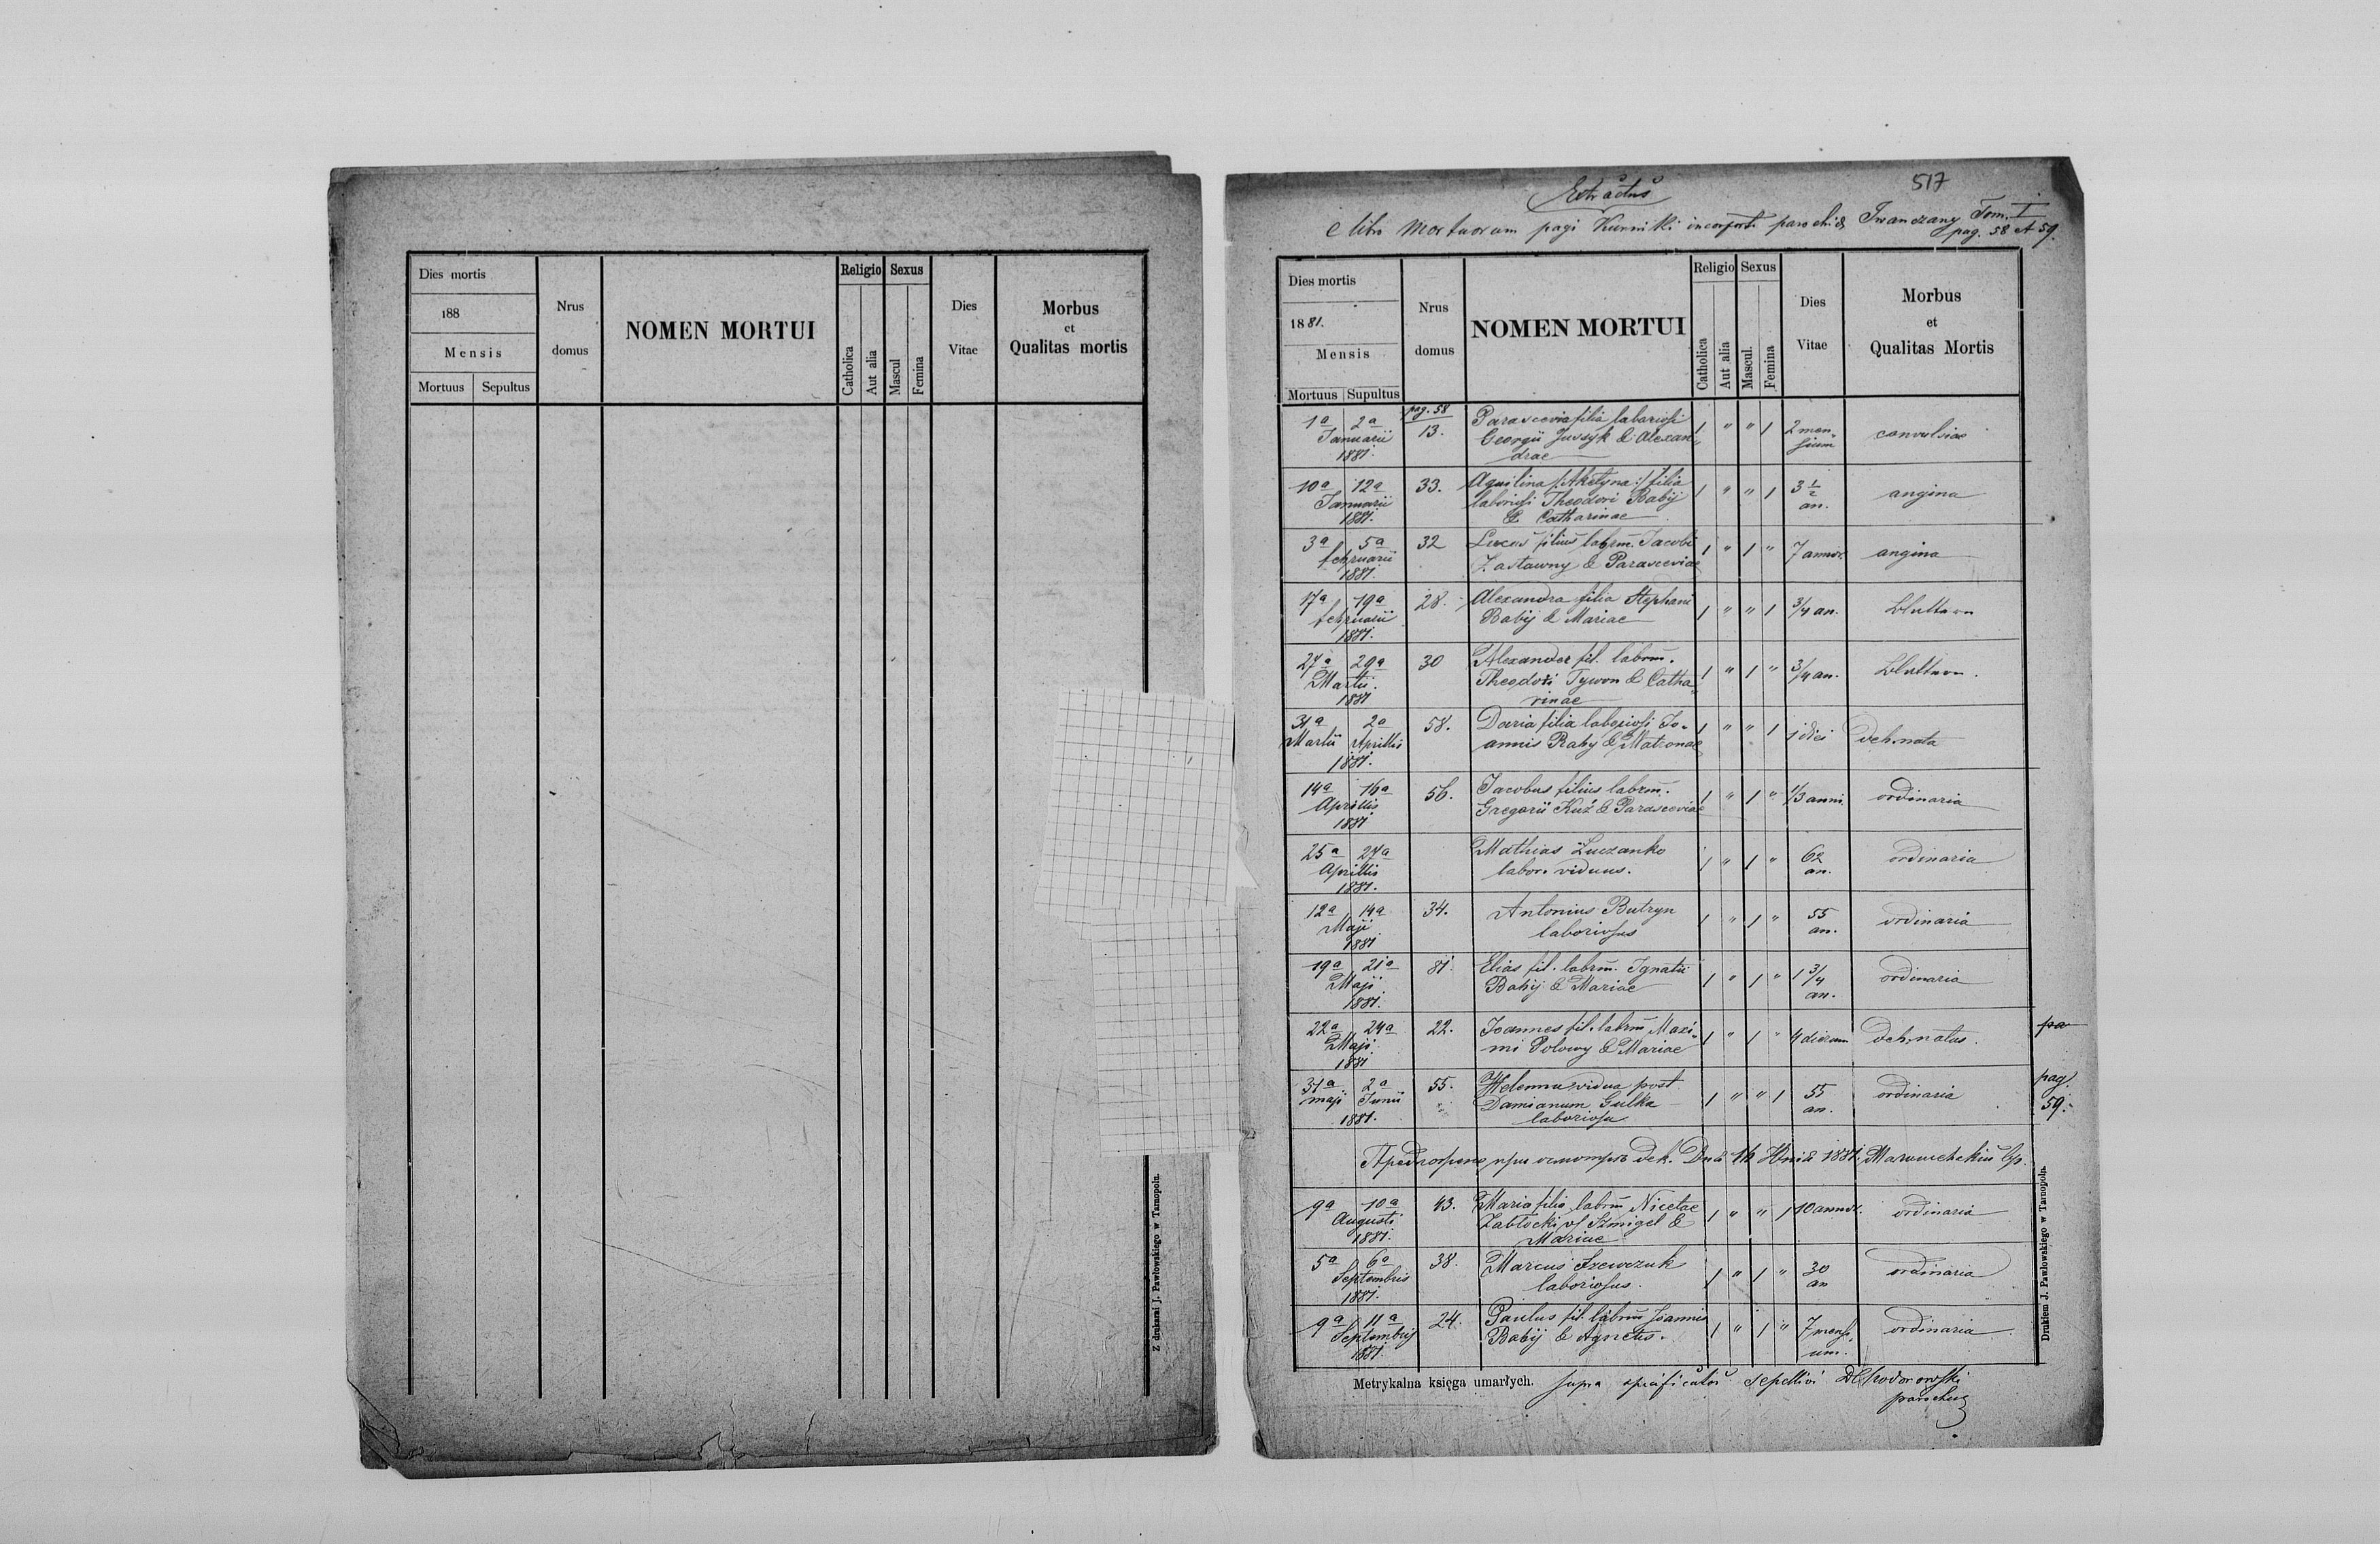 Dies mortis
188
Mensis
Mortuus Sepultus
Nrus
domus
NOMEN MORTUI
Religio Sexus
Catholica
Aut alia
Mascul
Femina
Dies
Vitae
Morbus
et
Qualitas mortis
Z drukarni J. Pawłowskiego w Tarnopolu.
517
Extractus
e libro Mortuorum pagi Kurniki parochiae Iwanczany Tom. I
pag. 58 et 59.
Dies mortis
1881.
Mensis
Mortuus Supultus
Nrus
domus
NOMEN MORTUI
Religio Sexus
Catholica
Aut alia
Mascul.
Femina
Dies
Vitae
Morbus
et
Qualitas Mortis
pag. 58
1a 2a 13. Parascevia filia laboriosi 1 " " 1 2 men-
Januarii Georgii & Alexan- sium
1881. drae
10a 12a 33. Aquilina /:Akelyna:/ filia 1 " " 1 3 1/2 angina
Januarii laboriosi Theodori Babij an.
1881. & Catharinae
3a 5a 32 Lucas filius labrm. Jacobi 1 " 1 " 7 annor. angina
februarii Zastawny & Parasceviae
1881.
17a 19a 28. Alexandra filia Stephani 1 " " 1 3/4 an.
februarii Babij & Mariae
1881.
27a 29a 30 Alexander fil. labrm. 1 " 1 " 3/4 an.
Martii. Theodori Tywon & Catha-
1881 rinae
31a 2a 58. Daria filia laboriosi Jo- 1 " " 1 1 diei deb. nata
Martii Aprillis annis Baby & Matronae
1881.
14a 16a 56. Jacobus filius labrm. 1 " 1 " 1/3 anni. ordinaria
Aprillis Gregorii Kuź & Parasceviae
1881
25a 27a Mathias Łuczanko 1 " 1 " 62 ordinaria
Aprillis labor. viduus. an.
1881.
12a 14a 34. Antonius Butryn 1 " 1 " 55 ordinaria
Maji laboriosus an.
1881
19a 21a 81. Elias fil. labrm. Ignatii 1 " 1 " 1 3/4 ordinaria
Maji Babij & Mariae an.
1881.
22a 24a 22. Joannes fil. labrm Maxi- 1 " 1 " 4 dierum deb. natus.
Maji mi Polowy & Mariae
1881
pa
31a 2a 55. Helenna vidua post 1 " " 1 55 ordinaria
maji Junii Damianum Gulka an.
1881. laboriosa
pag.
59.
при дек. Дня 1881.
9a 10a 43. Maria filia labrm Nicetae 1 " " 1 10 annor. ordinaria
Augusti Zabłocki Szmigel &
1881. Mariae
5a 6a 38. Marcus Szewczuk 1 " 1 " 30 ordinaria
Septembris laboriosus. an
1881.
9a 11a 24. Paulus fil. labrm Joannis 1 " 1 " 7 mensi- ordinaria
Septembris Babij & Agnetis. um.
1881.
Metrykalna księga umarłych. supra specificatos sepelivi
parochus
Drukiem J. Pawłowskiego w Tarnopolu.